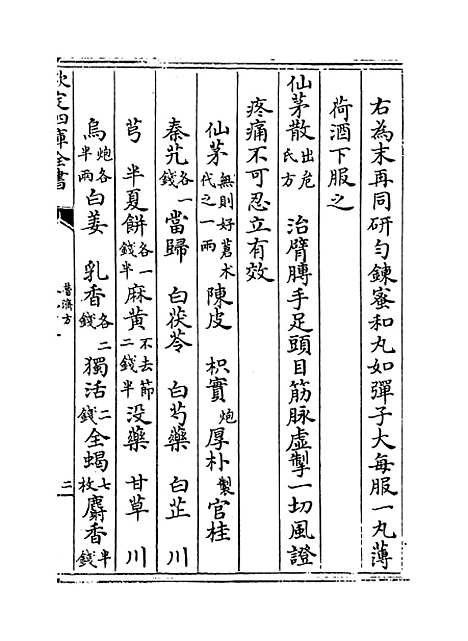 右為末再同研勻鍊蜜和丸如彈子大每服一丸薄
荷酒下服之
仙茅散出危氏方 治臂膊手足頭目筋脉虛掣一切風證
疼痛不可忍立有效
仙茅無則好蒼术代之一兩 陳皮 枳實炮 厚朴製 官桂
秦艽各一錢 當歸 白茯苓 白芍藥 白芷 川
芎 半夏餅各一錢半 麻黃不去節二錢半 没藥 甘草 川
烏炮各半兩 白姜 乳香各二錢 獨活二錢 全蝎七枚 麝香半錢
欽定四庫全書
普濟方
二